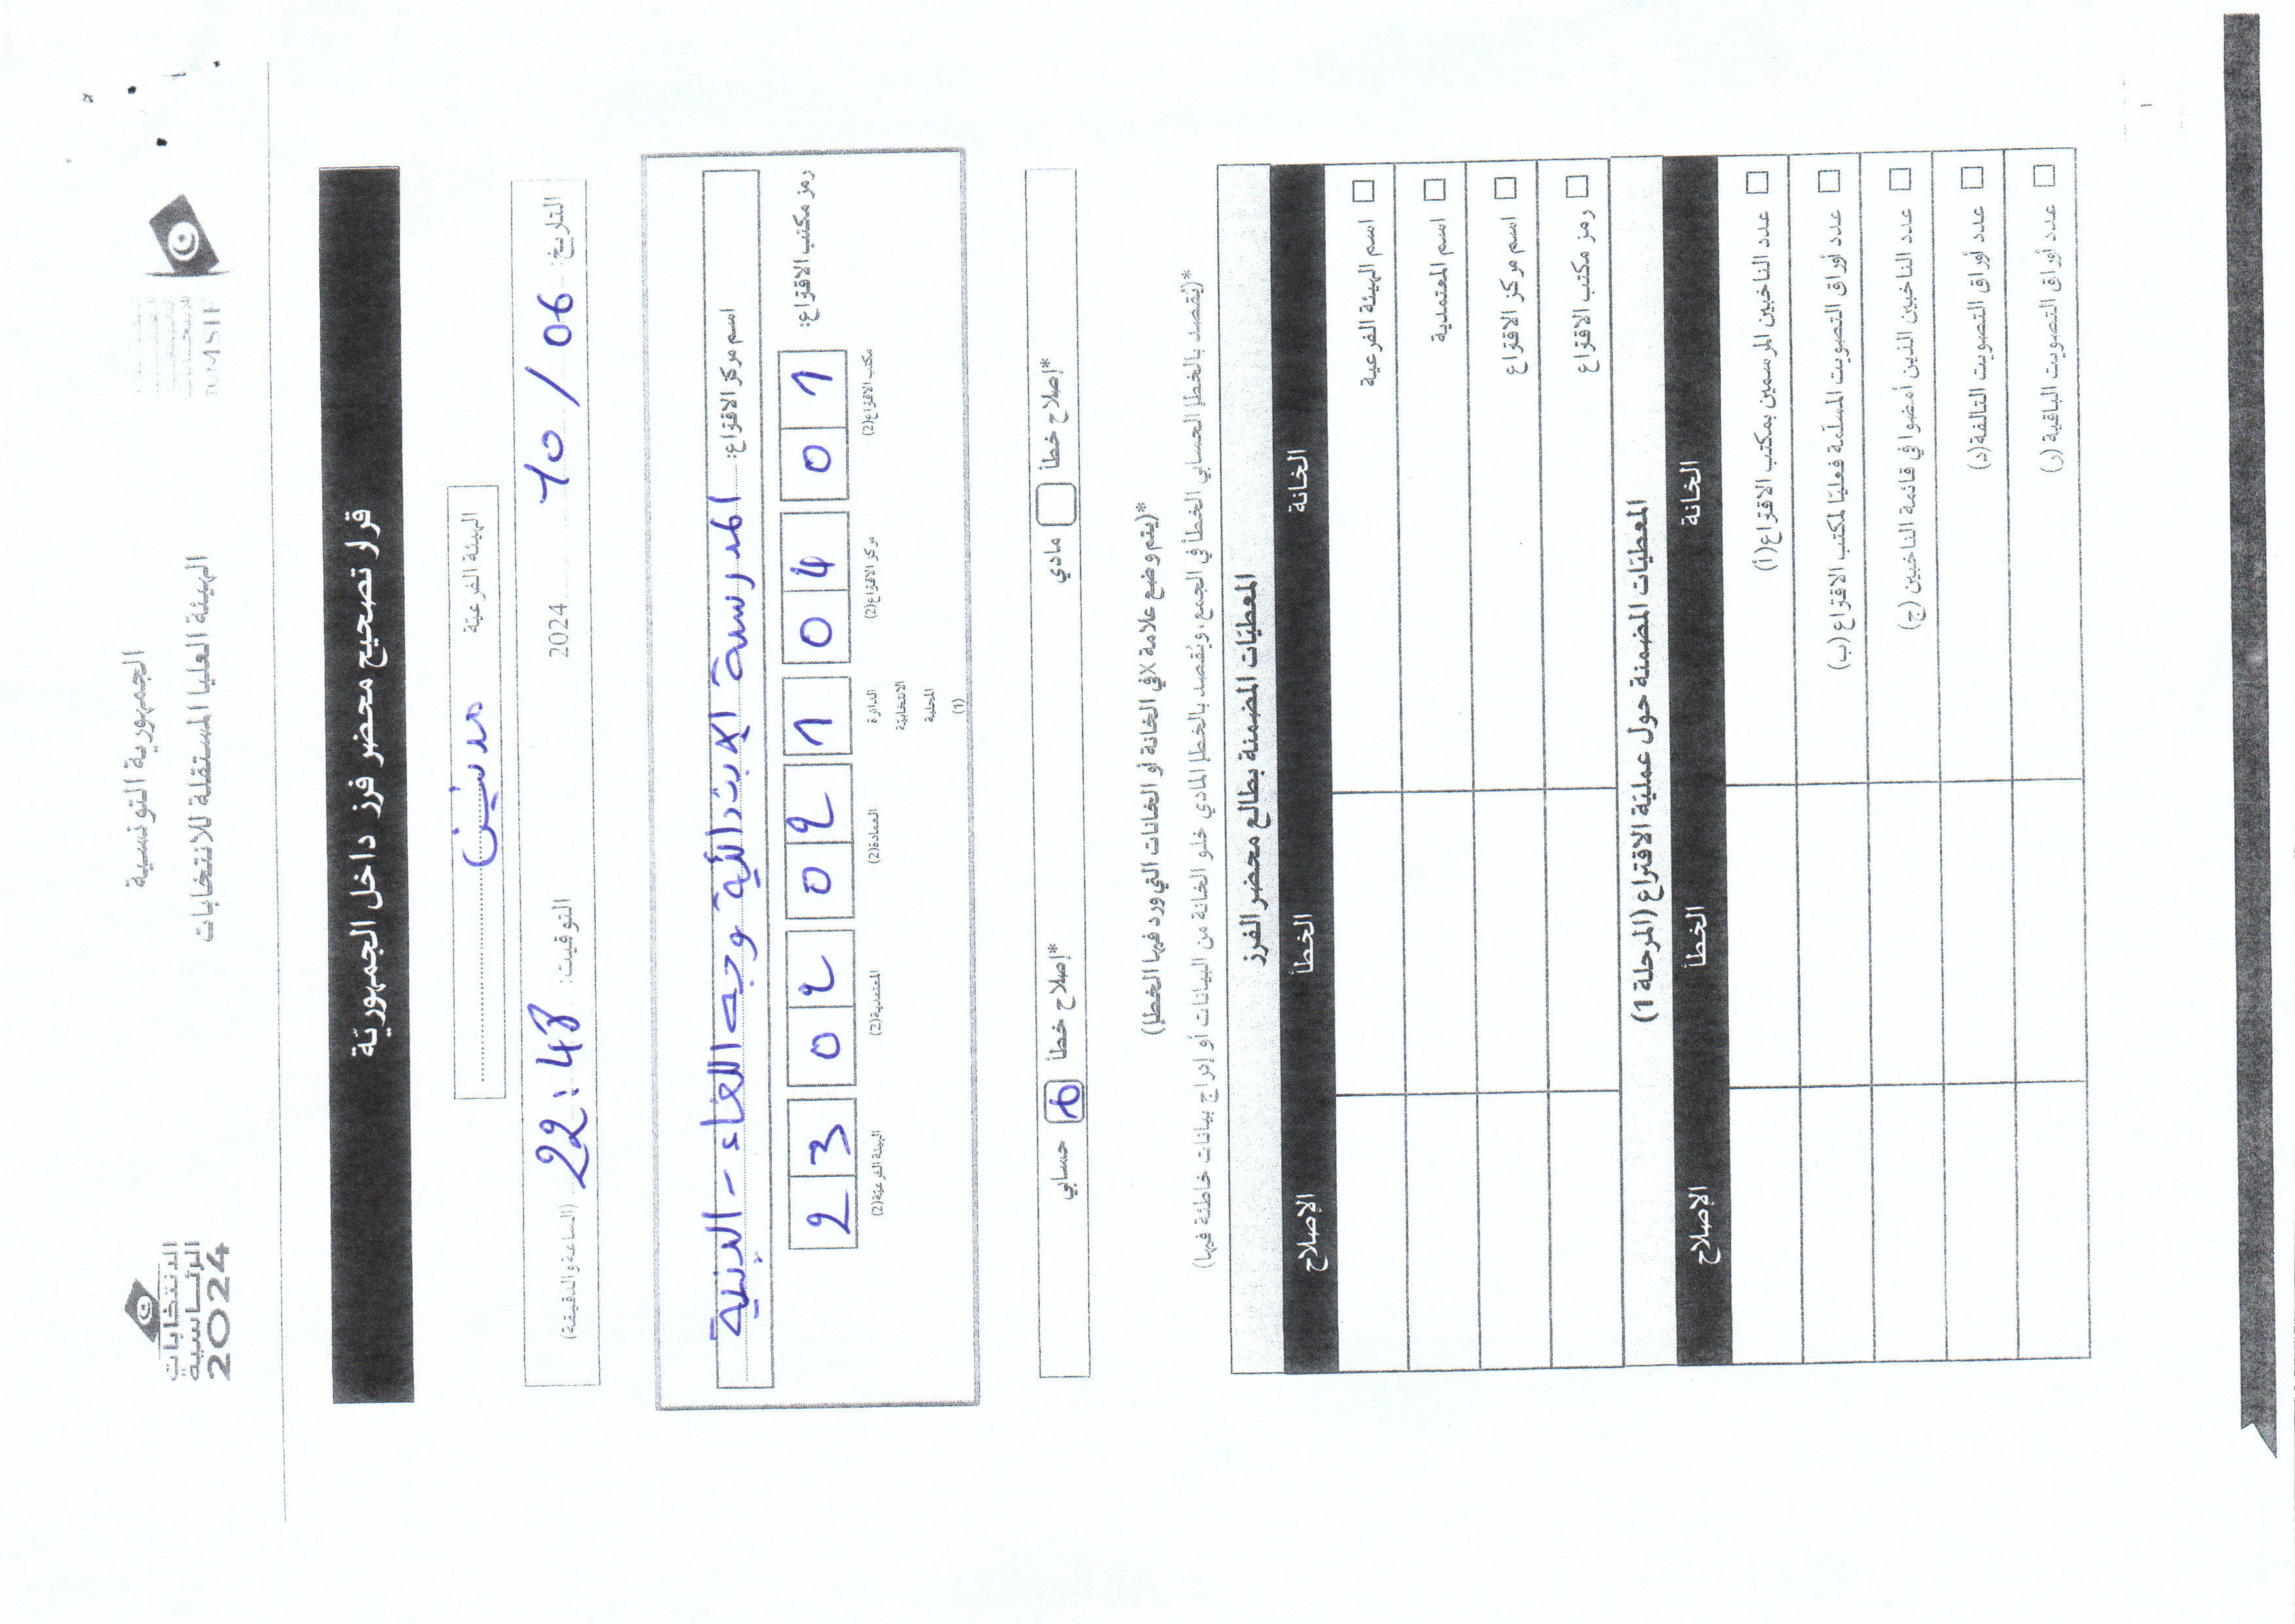 الانتخابات
الرئاسية
2024
الجمهورية التونسية
الهيئة العليا المستقلة للانتخابات
قرار تصحيح محضر فرز داخل الجمهوريّة
الهيئة الفرعية مدنين
التاريخ: 06 / 10 2024 التوقيت: 22:48 (الساعة والدقيقة)
اسم مركز الاقتراع: المدرسة الابتدائية وجه اللغاء -
رمز مكتب الاقتراع: 23 02 02 1 04 01
مكتب الاقتراع(2) مركز الاقتراع(2) الدائرة الانتخابية المحلية (1) العمادة(2) المعتمدية(2) الهيئة الفرعية(2)
*إصلاح خطأ مادي *إصلاح خطأ حسابي
*(يتم وضع علامة X في الخانة أو الخانات التي ورد فيها الخطإ)
*(يُقصد بالخطإ الحسابي الخطأ في الجمع، ويُقصد بالخطإ المادي خلو الخانة من البيانات أو إدراج بيانات خاطئة فيها)
المعطيات المضمنة بطالع محضر الفرز
الخانة الخطأ الإصلاح
اسم الهيئة الفرعية
اسم المعتمدية
اسم مركز الاقتراع
رمز مكتب الاقتراع
المعطيات المضمنة حول عملية الاقتراع (المرحلة 1)
الخانة الخطأ الإصلاح
عدد الناخبين المرسمين بمكتب الاقتراع(أ)
عدد أوراق التصويت المسلّمة فعليّا لمكتب الاقتراع (ب)
عدد الناخبين الذين أمضوا في قائمة الناخبين (ج)
عدد أوراق التصويت التالفة(د)
عدد أوراق التصويت الباقية (ر)
1